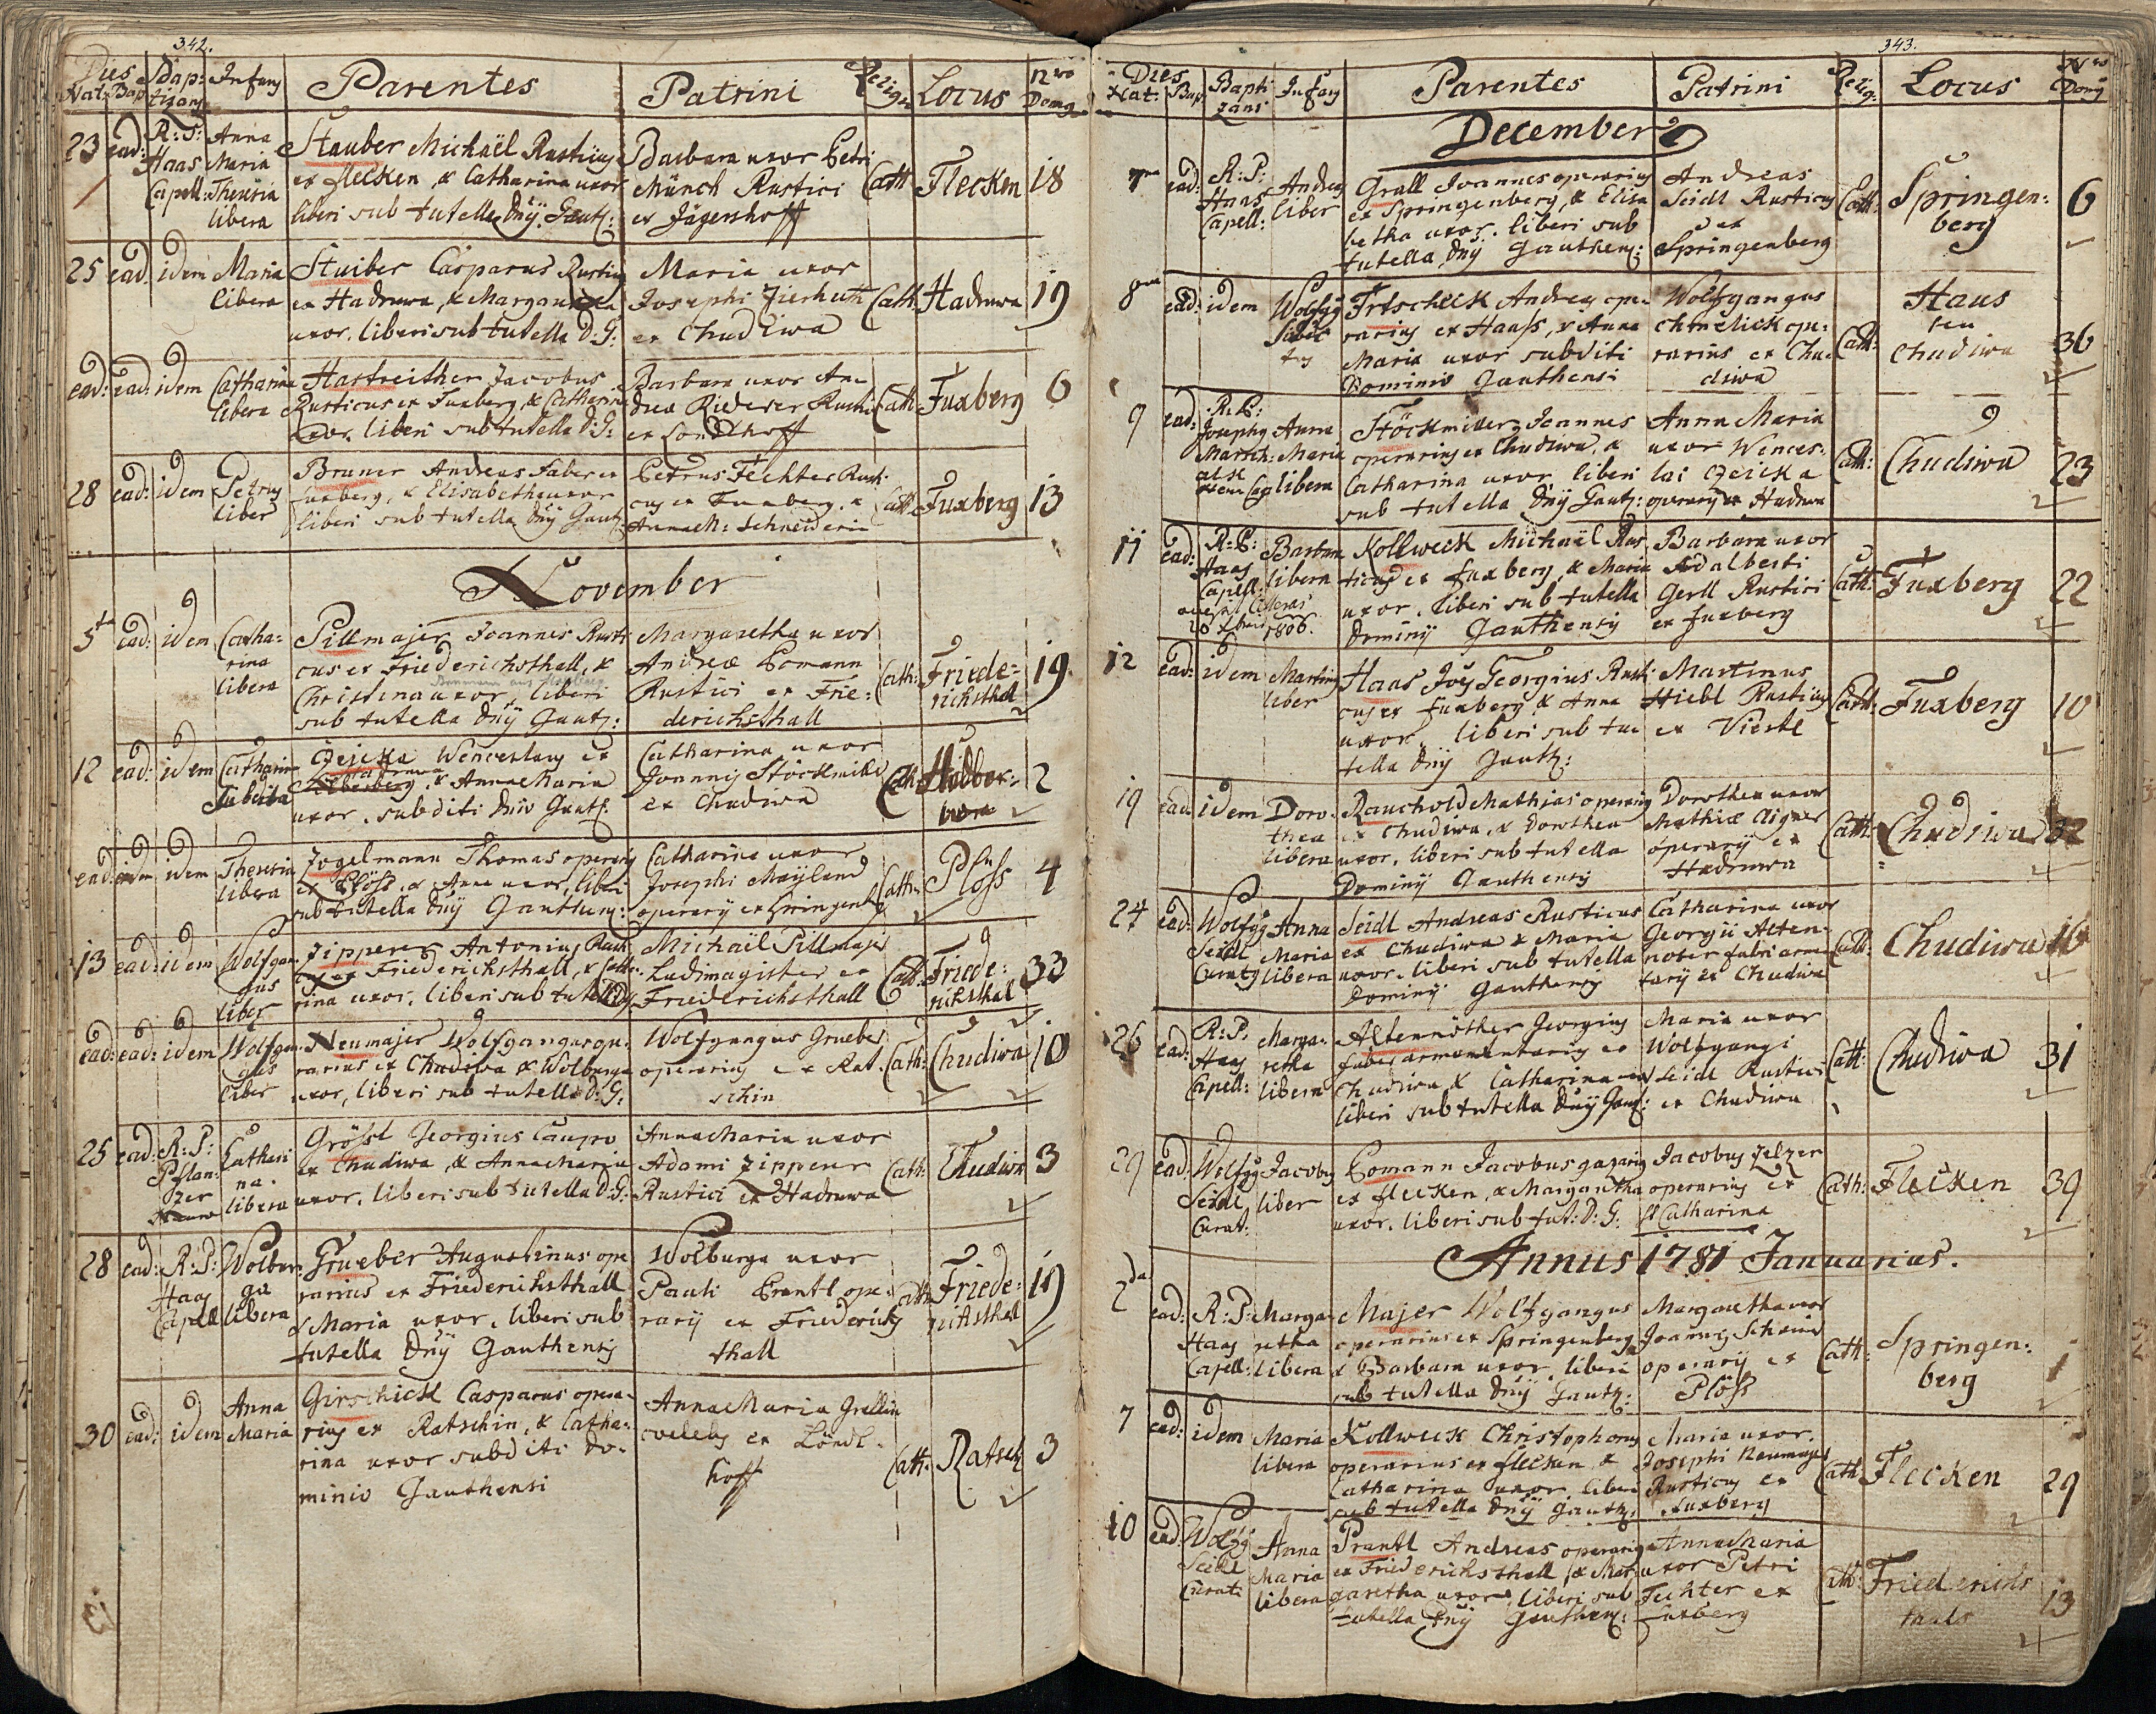 342.
Dies Nat: Bap Baptizans Infans Parentes Patrini Relig: Locus Nro Domus
23 ead: R: P: Haas Capell: Anna Maria Theresia libera
Stauber Michaël Rusticus
ex Flecken, & Catharina uxor
liberi sub tutella Dnÿ. Gautz:
Barbara uxor Petri
Münch Rustici
ex Jägershoff
Cath: Flecken 18
25 ead: idem Maria libera
Stuiber Casparus Rusticus
ex Hadruwa, & Margaretha
uxor. liberi sub tutella D: G:
Maria uxor
Josephi Zierhuth
ex Chudiwa
Cath: Hadruwa 19
ead: ead: idem Catharina libera
Hastreither Jacobus
Rusticus ex Fuxberg, & Catharina
uxor. liberi sub tutella D: G:
Barbara uxor An
dreæ Riederer Rustici
ex Londlhoff
Cath: Fuxberg 6
28 ead: idem Petrus liber
Bruner Andreas Faber ex
fuxberg, & Elisabetha uxor
liberi sub tutella Dnÿ Gautz:
Petrus Fechter Rusti
cus ex Fuxberg, &
Annam: Schneiderin
Cath: Fuxberg 13
November
5ta ead: idem Catha=
rina
libera
Pillmajer Joannes Rusti
cus ex Friederichsthall, &
Christina uxor, liberi
sub tutella Dnÿ Gautz:
Margaretha uxor
Andreæ Pomann
Rustici ex Frie=
derichsthall
Cath: Friede=
richsthal 19.
12 ead: idem Catharina Subdita
Czeicka Wenceslaus ex
& Anna Maria
uxor. subditi Dnio Gautz.
Catharina uxor
Joannis Stöckmiller
ex Chudiwa
Cath: 2
ead: idem Theresia libera
Zogelmann Thomas operarius
ex Plöss, & Anna uxor, liberi
sub tutella Dnÿ Gauthens:
Catharina uxor
Josephi Maÿland
operarÿ ex Springenb
Cath: Plöss 4
13 ead: idem Wolfgan=
gus
liber
Zipperer Antonius Rusti
cus ex Friederichsthall, & Catha
rina uxor. liberi sub tutella
Michaël Pillmajer
Ludimagister ex
Friederichsthall
Cath: Friede=
richsthal 33
ead: ead: idem Wolfgan
gus
liber
Neumajer Wolfgangus ope
rarius ex Chudiwa & Wolburga
uxor, liberi sub tutella D: G:
Wolfgangus Grueber
operarius ex Rat
schin
Cath: Chudiwa 10
25 ead: R: P: Pflan=
zer
Cathari
na.
libera
Grössl Georgius Caupo
ex Chudiwa, & Anna Maria
uxor. liberi sub tutella D: G:
Anna Maria uxor
Adami Zipperer
Rustici ex Hadruwa
Cath: Chudiwa 3
28 ead: R: P: Haas Capell Wolbur=
ga
libera
Grueber Augustinus ope
rarius ex Friederichsthall
& Maria uxor, liberi sub
tutella Dnÿ Gauthensis
Wolburga uxor
Pauli Prantl ope
rarÿ ex Friederichs
thall
Cath: Friede=
richsthal 19
30 ead: idem Anna Maria
Girschick Casparus opera
rius ex Ratschin, & Catha=
rina uxor subditi do=
minio Gauthensi
Anna Maria Grellin
coelebs ex Londl=
hoff
Cath: Ratsch 3
343.
Dies Nat: Bap Baptizans Infans Parentes Patrini Relig: Locus Nro Domus
December
7ma ead: R: P: Haas Capell: Andreas liber
Grall Joannes operarius
ex Springenberg, & Elisa
betha uxor. liberi sub
tutella Dnÿ Gauthens:
Andreas
Seidl Rusticus
ex
Springenberg
Cath: Springen=
berg 6
8va ead: idem Wolfgg Subdi
tus
Frtscheck Andreas ope
rarius ex Hauss, & Anna
Maria uxor subditi
Dominio Gauthensi
Wolfgangus
Chmelick ope=
rarius ex Chu
diwa
Cath: Haus
seu
Chudiwa 36
9 ead: R: P: Josephus Anna Maria libera
Stöckmiller Joannes
operarius ex Chudiwa, &
Catharina uxor, liberi
sub tutella Dnÿ Gautz:
Anna Maria
uxor Wences=
lai Czeicka
operarÿ ex Hadruwa
Cath: Chudiwa 23
11 ead: R: P: Haas Capell: Barbara libera
1806.
Kollweck Michaël Rus
ticus ex fuxberg, & Maria
uxor. liberi sub tutella
Dominÿ Gauthensis
Barbara uxor
Adalberti
Gerll Rustici
ex fuxberg
Cath: Fuxberg 22
12 ead: idem Martinus liber
Haas Joës Georgius Rusti
cus ex fuxberg & Anna
uxor. liberi sub tu
tella Dnÿ Gautz:
Martinus
Hiebl Rusticus
ex Viertl
Cath: Fuxberg 10
19 ead: idem Doro=
thea
libera
Raucholdt Mathias operarius
ex Chudiwa, & Dorothea
uxor, liberi sub tutella
Dominÿ Gauthensis
Dorothea uxor
Mathiæ Aigner
operarÿ ex
Hadruwa
Cath: Chudiwa 32
24 ead: Wolfgg Seidl Curatus Anna Maria libera
Seidl Andreas Rusticus
ex Chudiwa & Maria
uxor. liberi sub tutella
Dominÿ Gauthensis
Catharina uxor
Georgii Alten=
noter fabri arma
tarÿ ex Chudiwa
Cath: Chudiwa 16
26 ead: R: P. Haas Capell: Marga=
retha
libera
Altennöther Georgius
faber armamentarius ex
Chudiwa & Catharina uxor
liberi sub tutella Dnÿ Gautz:
Maria uxor
Wolfgangi
Seidl Rustici
ex Chudiwa
Cath: Chudiwa 31
29 ead: Wolfgg Seidl Curat: Jacobus liber
Pomann Jacobus gazarius
ex flecken, & Margaretha
uxor. liberi sub tut: D: G:
Jacobus Zelzer
operarius ex
St Catharina
Cath: Flecken 39
Annus 1781 Januarius.
2da ead: R: P: Haas Capell: Marga
retha
libera
Majer Wolfgangus
operarius ex Springenberg
& Barbara uxor, liberi
sub tutella Dnÿ Gautz:
Margaretha uxor
Joannis
operarÿ ex
Plöss
Cath: Springen=
berg 1
7 ead: idem Maria libera
Kollweck Christophorus
operarius ex flecken &
Catharina uxor liberi
sub tutella Dnÿ Gautz:
Maria uxor.
Josephi Neumajer
Rusticus ex
fuxberg
Cath: Flecken 29
10 ead: Wolfgg Seidl Curat: Anna Maria libera
Prantl Andreas operarius
ex Friederichsthall & Mar
garetha uxor, liberi sub
tutella Dnÿ Gauthens:
Anna Maria
uxor Petri
Fechter ex
fuxberg
Cath: Friederichs
thals 13